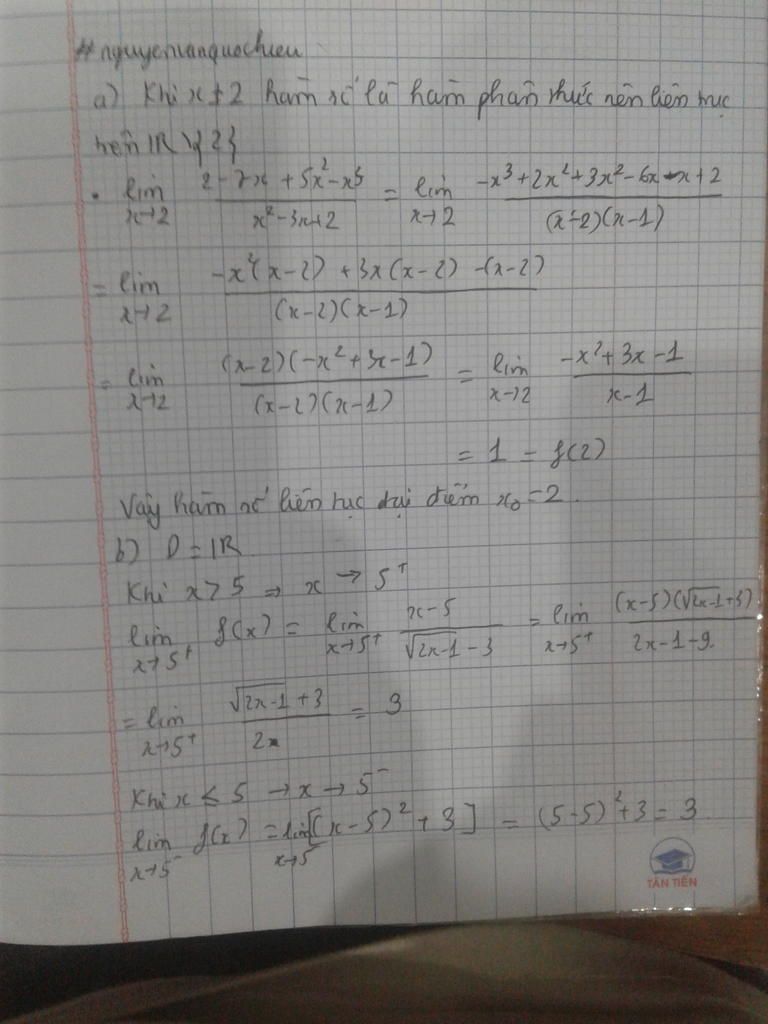 #nguyenvanquochieu
a) Khi x ≠ 2 hàm số là hàm phân thức nên liên tục
trên IR \{2}
• lim x→2 (2 - 7x + 5x² - x³)/(x² - 3x + 2) = lim x→2 (-x³ + 2x² + 3x² - 6x - x + 2)/((x - 2)(x - 1))
= lim x→2 (-x²(x - 2) + 3x(x - 2) - (x - 2))/((x - 2)(x - 1))
= lim x→2 ((x - 2)(-x² + 3x - 1))/((x - 2)(x - 1)) = lim x→2 (-x² + 3x - 1)/(x - 1)
= 1 = f(2)
Vậy hàm số liên tục tại điểm x₀ = 2.
b) D = IR
Khi x > 5 ⇒ x → 5⁺
lim x→5⁺ f(x) = lim x→5⁺ (x - 5)/(√(2x - 1) - 3) = lim x→5⁺ ((x - 5)(√(2x - 1) + 3))/(2x - 1 - 9)
= lim x→5⁺ (√(2x - 1) + 3)/2 = 3
Khi x ≤ 5 → x → 5⁻
lim x→5⁻ f(x) = lim x→5⁻ [(x - 5)² + 3] = (5 - 5)² + 3 = 3
TÂN TIẾN